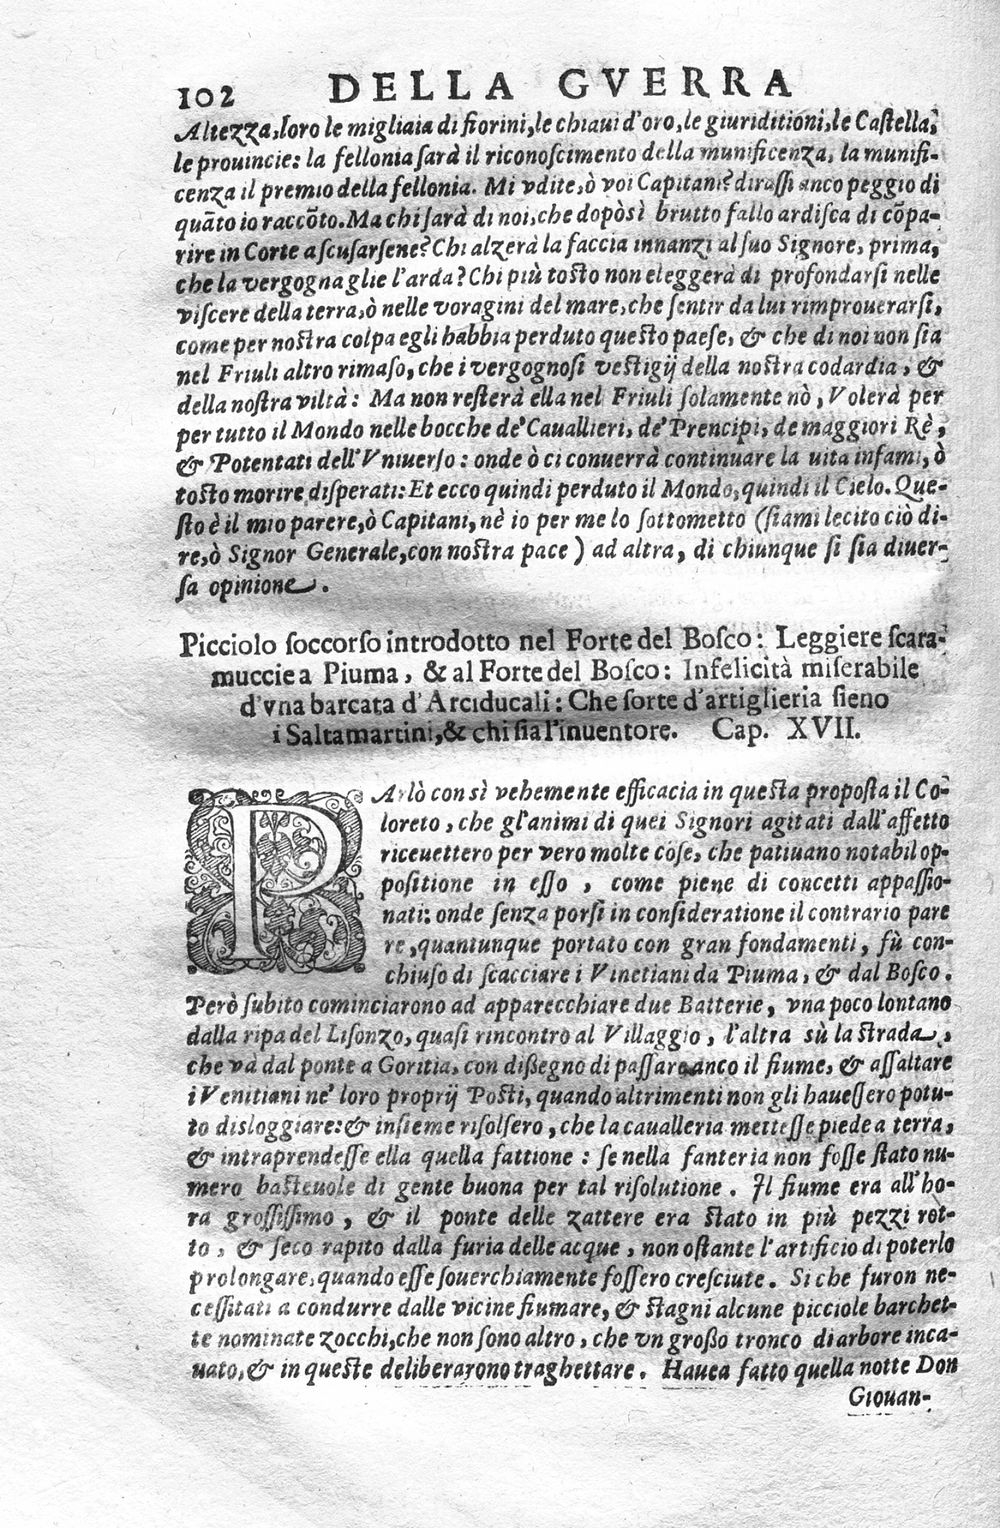 102 DELLA GVERRA
Altezza, loro le migliaia di fiorini, le chiaui d'oro, le giuriditioni, le Castella,
le prouincie: la fellonia sarà il riconoscimento della munificenza, la munifi-
cenza il premio della fellonia. Mi vdite, ò voi Capitani? dirassi anco peggio di
quãto io raccõto. Ma chi sarà di noi, che dopò sì brutto fallo ardisca di cõpa-
rire in Corte a scusarsene? Chi alzerà la faccia innanzi al suo Signore, prima,
che la vergogna glie l'arda? Chi più tosto non eleggerà di profondarsi nelle
viscere della terra, ò nelle voragini del mare, che sentir da lui rimprouerarsi,
come per nostra colpa egli habbia perduto questo paese, & che di noi non sia
nel Friuli altro rimaso, che i vergognosi vestigij della nostra codardia, &
della nostra viltà: Ma non resterà ella nel Friuli solamente nò, Volerà per
per tutto il Mondo nelle bocche de' Cauallieri, de' Prencipi, de maggiori Rè,
& Potentati dell'Vniuerso: onde ò ci conuerrà continuare la uita infami, ò
tosto morire disperati: Et ecco quindi perduto il Mondo, quindi il Cielo. Que-
sto è il mio parere, ò Capitani, nè io per me lo sottometto (siami lecito ciò di-
re, ò Signor Generale, con nostra pace) ad altra, di chiunque si sia diuer-
sa opinione.
Picciolo soccorso introdotto nel Forte del Bosco: Leggiere scara-
muccie a Piuma, & al Forte del Bosco: Infelicità miserabile
d'vna barcata d'Arciducali: Che sorte d'artiglieria sieno
i Saltamartini, & chi sia l'inuentore. Cap. XVII.
PArlò con sì vehemente efficacia in questa proposta il Co-
loreto, che gl'animi di quei Signori agitati dall'affetto
riceuettero per vero molte cose, che patiuano notabil op-
positione in esso, come piene di concetti appassio-
nati: onde senza porsi in consideratione il contrario pare
re, quantunque portato con gran fondamenti, fù con-
chiuso di scacciare i Vinetiani da Piuma, & dal Bosco.
Però subito cominciarono ad apparecchiare due Batterie, vna poco lontano
dalla ripa del Lisonzo, quasi rincontro al Villaggio, l'altra sù la strada,
che và dal ponte a Goritia, con dißegno di passare anco il fiume, & assaltare
i Venitiani ne' loro proprij Posti, quando altrimenti non gli hauessero potu-
to disloggiare: & insieme risolsero, che la caualleria mettesse piede a terra,
& intraprendesse ella quella fattione: se nella fanteria non fosse stato nu-
mero basteuole di gente buona per tal risolutione. Il fiume era all'ho-
ra grossissimo, & il ponte delle zattere era stato in più pezzi rot-
to, & seco rapito dalla furia delle acque, non ostante l'artificio di poterlo
prolongare, quando esse souerchiamente fossero cresciute. Si che furon ne-
cessitati a condurre dalle vicine fiumare, & stagni alcune picciole barchet-
te nominate zocchi, che non sono altro, che vn großo tronco di arbore inca-
uato, & in queste deliberarono traghettare. Hauea fatto quella notte Don
Giouan-